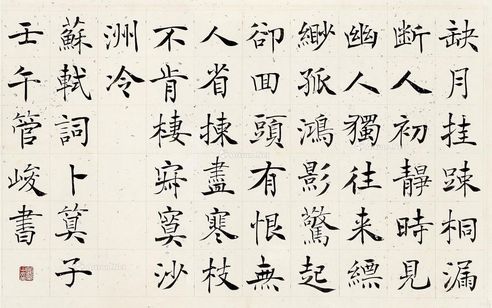 缺月挂踈桐漏
断人初靜時見
幽人獨往来縹
緲孤鴻影驚起
卻回頭有恨無
人省揀盡寒枝
不肯棲寂寞沙
洲冷
蘇軾詞卜算子
壬午管峻書